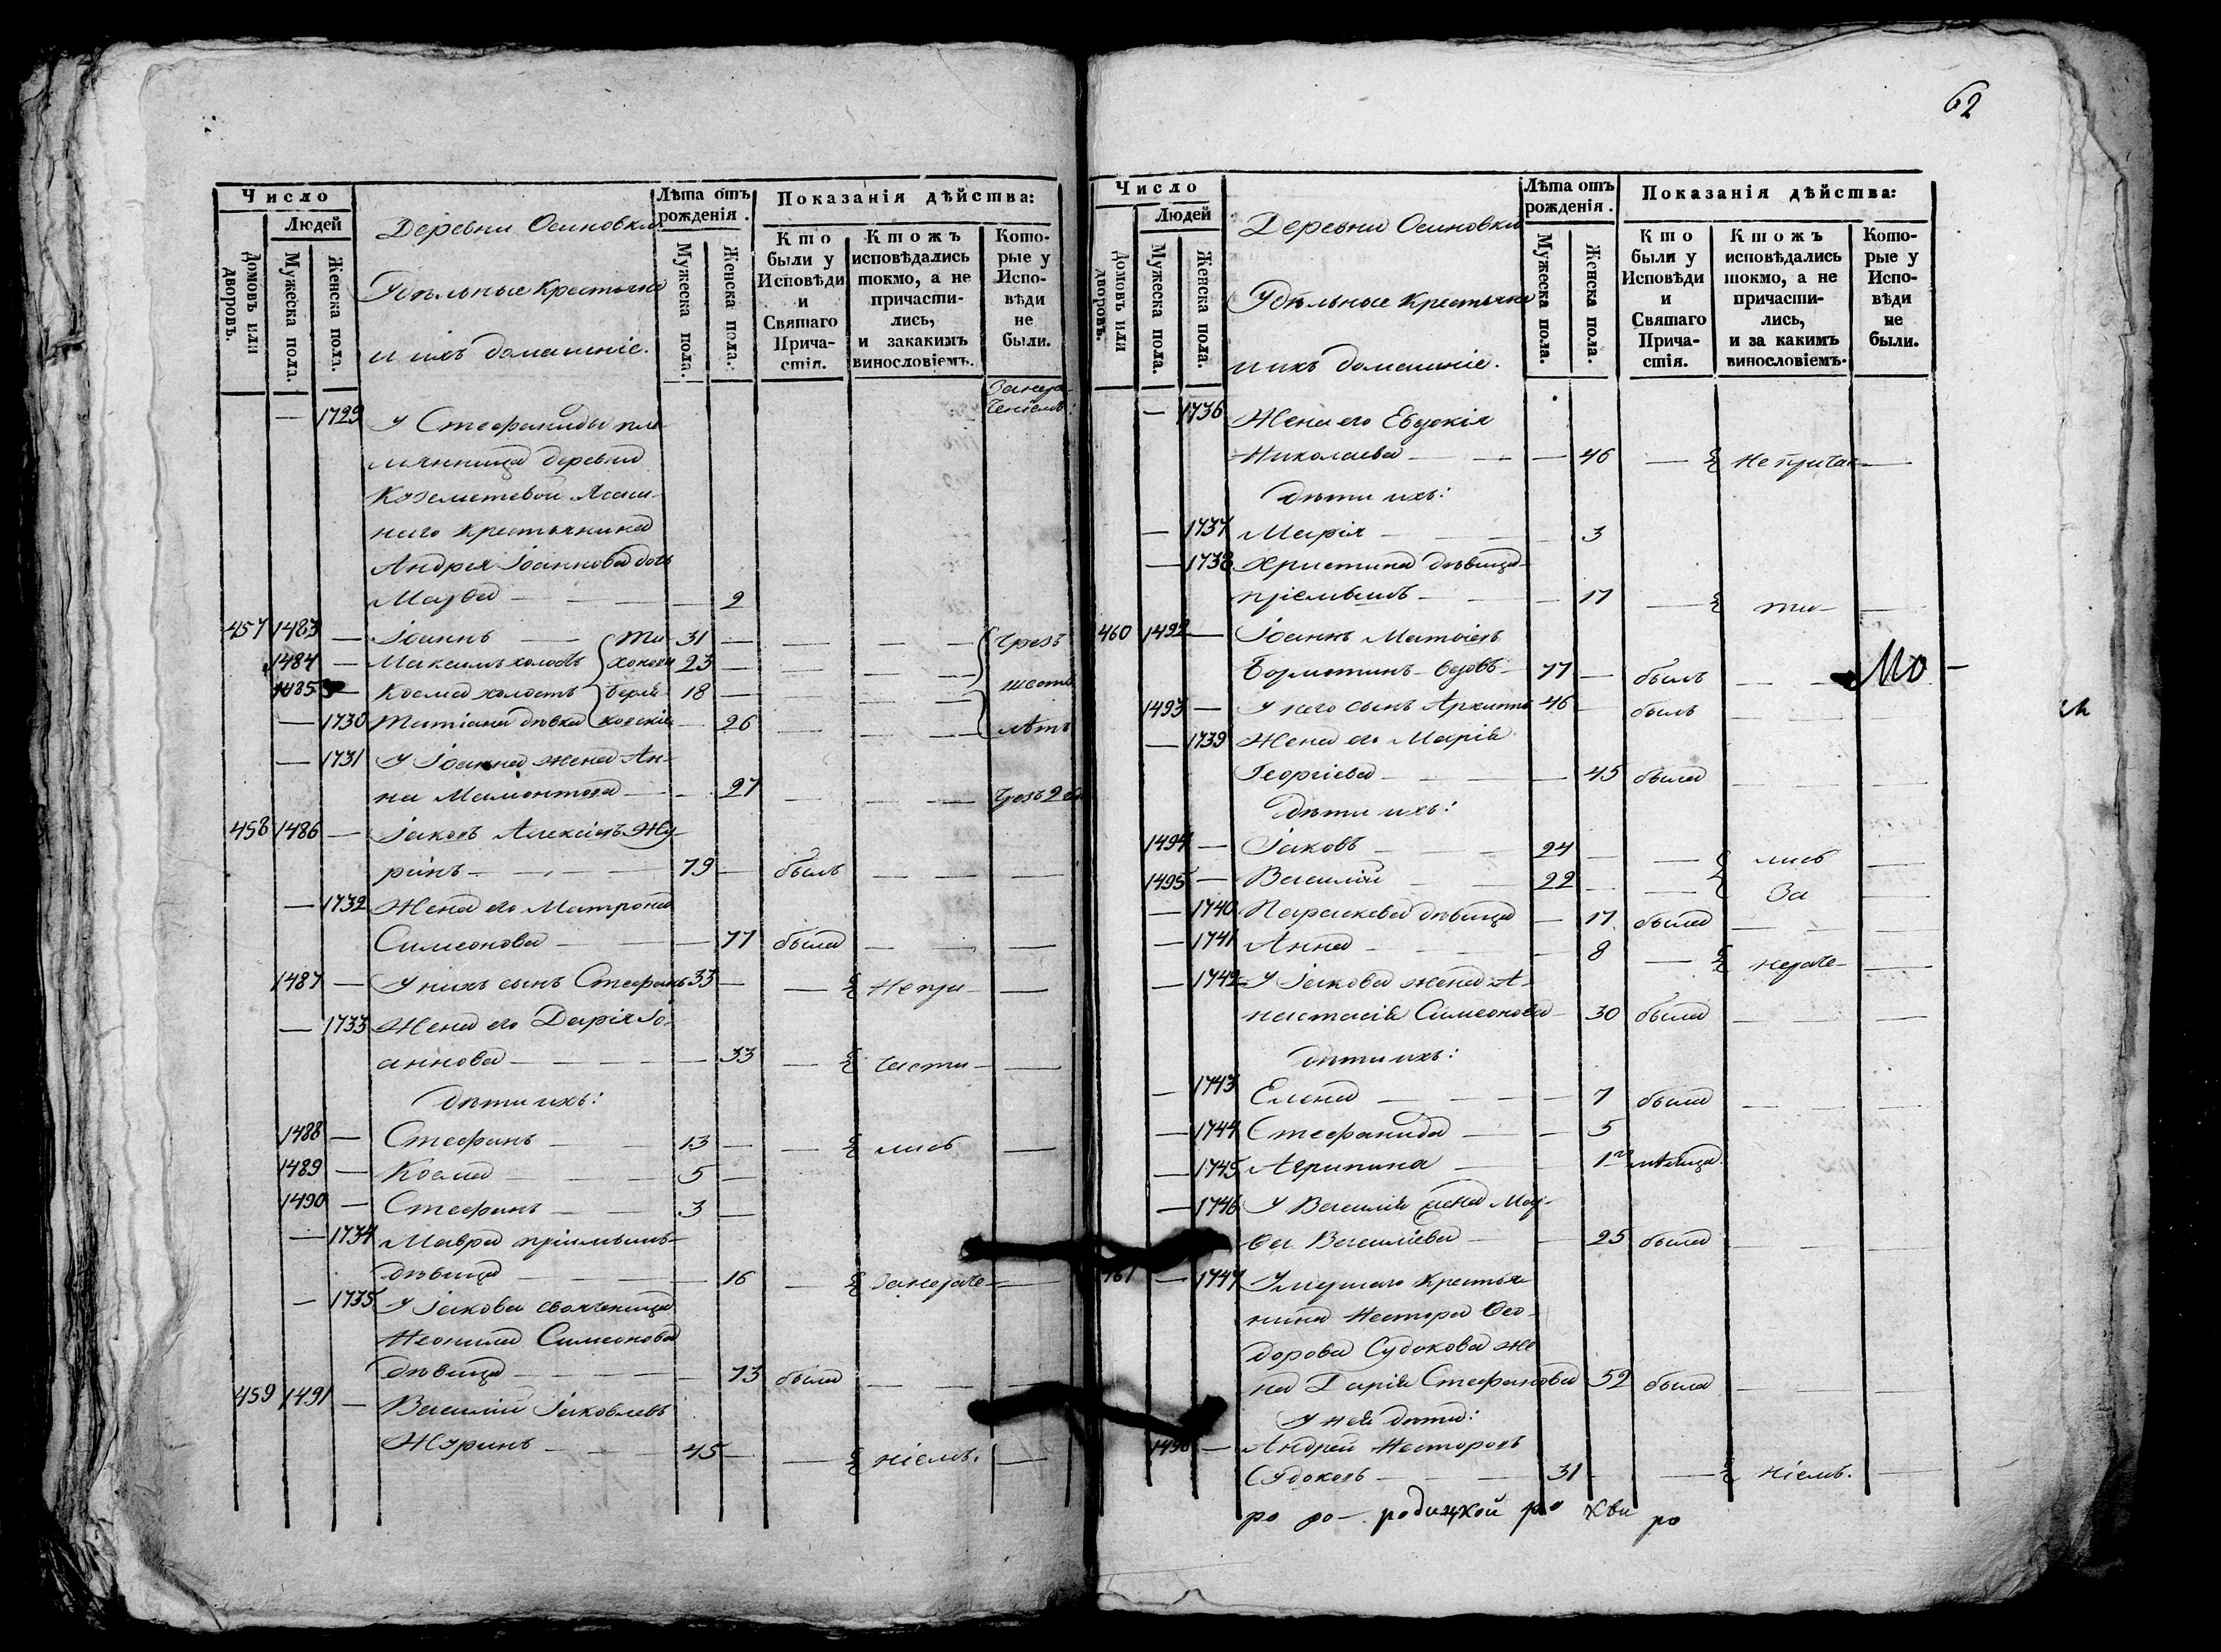 Число
Людей
Домовъ или дворовъ.
Мужеска пола.
Женска пола.
Деревни Осиновки
Удѣльные крестьяне
и ихъ домашніе.
Лѣта отъ рожденія.
Мужеска пола.
Женска пола.
Показанія дѣйства:
Кто были у Исповѣди и Святаго Причастія.
Ктожъ исповѣдались токмо, а не причастились, и закакимъ винословіемъ.
Которые у Исповѣди не были.
— 1729 У Стефаниды пле-
мянница деревни
крестьянина
Андрея Іоаннова дочь
— — 2
457 1483 — Іоаннъ — Ти- 31 — — — — Чрезъ
1484 — Максимъ холостъ хоновы 23 — — — —
1485 — Косма холостъ 18 — — — — шесть
— 1730 Татіана дѣвка — 26 — — — лѣтъ
— 1731 У Іоанна жена Ан-
на Мамонтова — — 27 — — — Чрезъ 2
458 1486 — Іаковъ Алексіевъ Жу-
ринъ — — — 79 — былъ — — —
— 1732 Жена его Матрона
Симеонова — — 77 была — — —
1487 — У нихъ сынъ Стефанъ 33 — — Непри- —
— 1733 Жена его Дарія Іо-
аннова — — — 33 — части- —
дѣти ихъ:
1488 — Стефанъ — — 13 — — лись —
1489 — Косма — — 5 —
1490 — Стефанъ — — 3 —
— 1734 Мавра пріемышъ-
дѣвица — — — 16 — Занераче- —
— 1735 У Іакова своячиница
Неонила Симеонова
дѣвица — — — 73 была — — —
459 1491 — Василій Іаковлевъ
Журинъ — — 45 — — ніемъ. —
62
Число
Людей
Домовъ или дворовъ.
Мужеска пола.
Женска пола.
Деревни Осиновки
Удѣльные крестьяне
и ихъ домашніе.
Лѣта отъ рожденія.
Мужеска пола.
Женска пола.
Показанія дѣйства:
Кто были у Исповѣди и Святаго Причастія.
Ктожъ исповѣдались токмо, а не причастились, и за какимъ винословіемъ.
Которые у Исповѣди не были.
— 1736 Жена его Евдокія
Николаева — — — 46 — Непричас- —
дѣти ихъ:
— 1737 Марія — — — 3
— 1738 Христина дѣвица
пріемышъ — — — 17 — ти- —
460 1492 — Іоаннъ Матвіевъ
Бормотинъ вдовъ — 77 — былъ — — Мо —
1493 — У него сынъ Архиппъ 46 — былъ — — —
— 1739 Жена его Марія
Георгіева — — — 45 была — — —
дѣти ихъ:
1494 — Іаковъ — — 24 — — лись —
1495 — Василій — — 22 — — За —
— 1740 Параскева дѣвица — 17 была — — —
— 1741 Анна — — — 8 — нераче- —
— 1742 У Іакова жена А-
настасія Симеонова — 30 была — — —
дѣти ихъ:
— 1743 Елена — — — 7 была — — —
— 1744 Стефанида — — 5
— 1745 Агрипина — 1 мѣсяца
— 1746 У Василія жена Мар-
ѳа Васильева — — 25 была — — —
461 — 1747 Умершаго крестья-
нина Нестора Ѳео-
дорова Судокова же-
на Дарія Стефанова 52 была — — —
У нея дѣти:
1496 — Андрей Несторовъ
Судоковъ — — 31 — — ніемъ. —
ро ро — родицкой ро кви ро